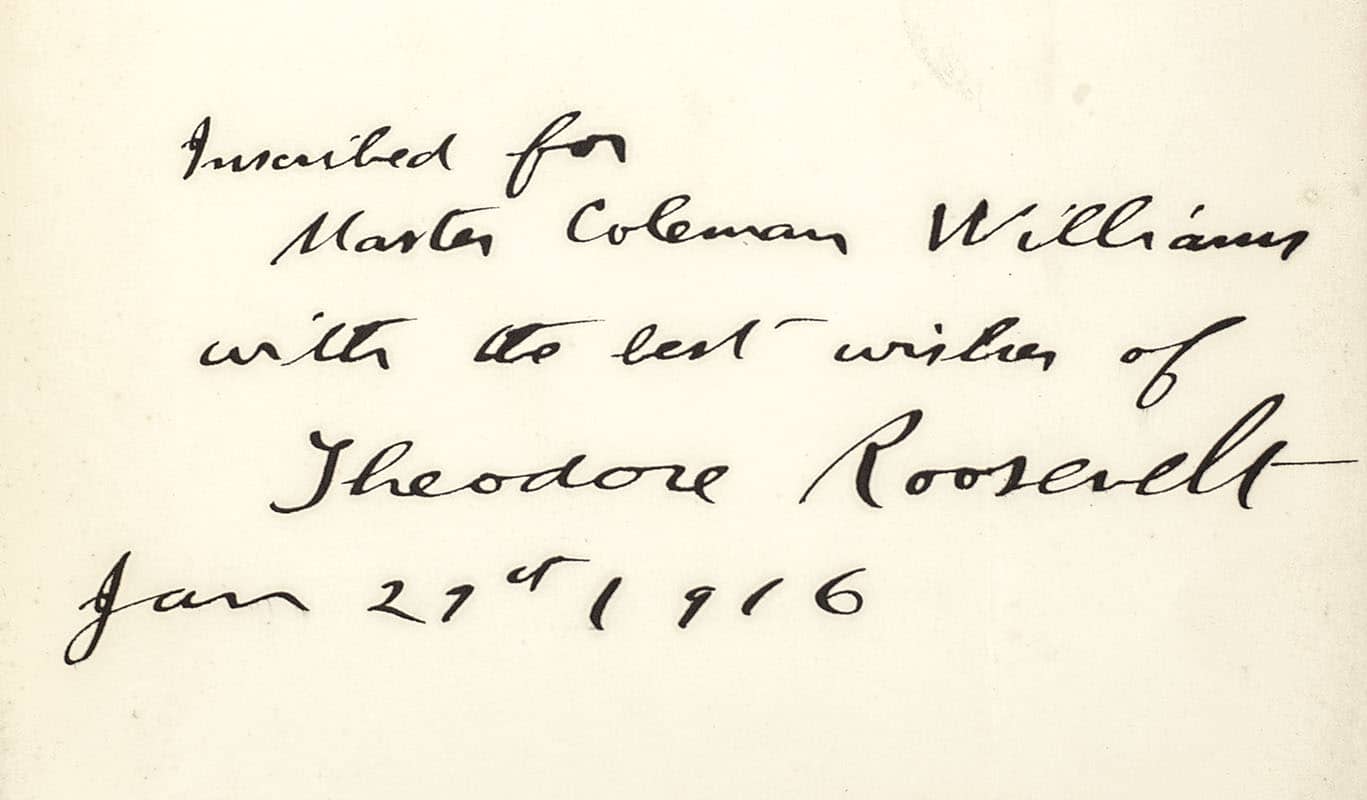 Inscribed for
Master Coleman Williams
with the best wishes of
Theodore Roosevelt
Jan 27st 1916